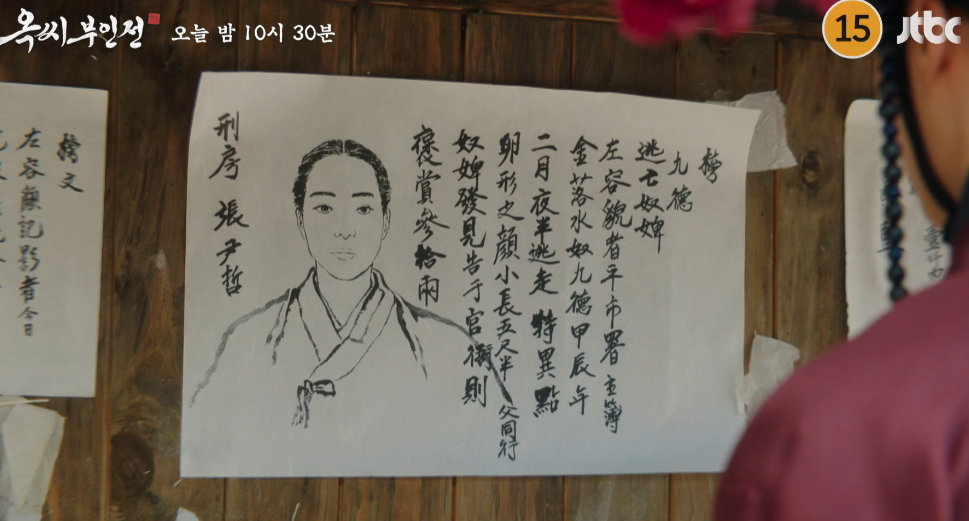 옥씨부인전 오늘 밤 10시 30분
15
jtbc
榜
九德
逃亡奴婢
左容貌者平市署主簿
金落水奴九德甲辰年
二月夜半逃走 特異點
卵形之顔小長五尺半 父同行
奴婢發見告于官衙則
褒賞參拾兩
刑房 張尹哲
榜文
左容顔記影者今日